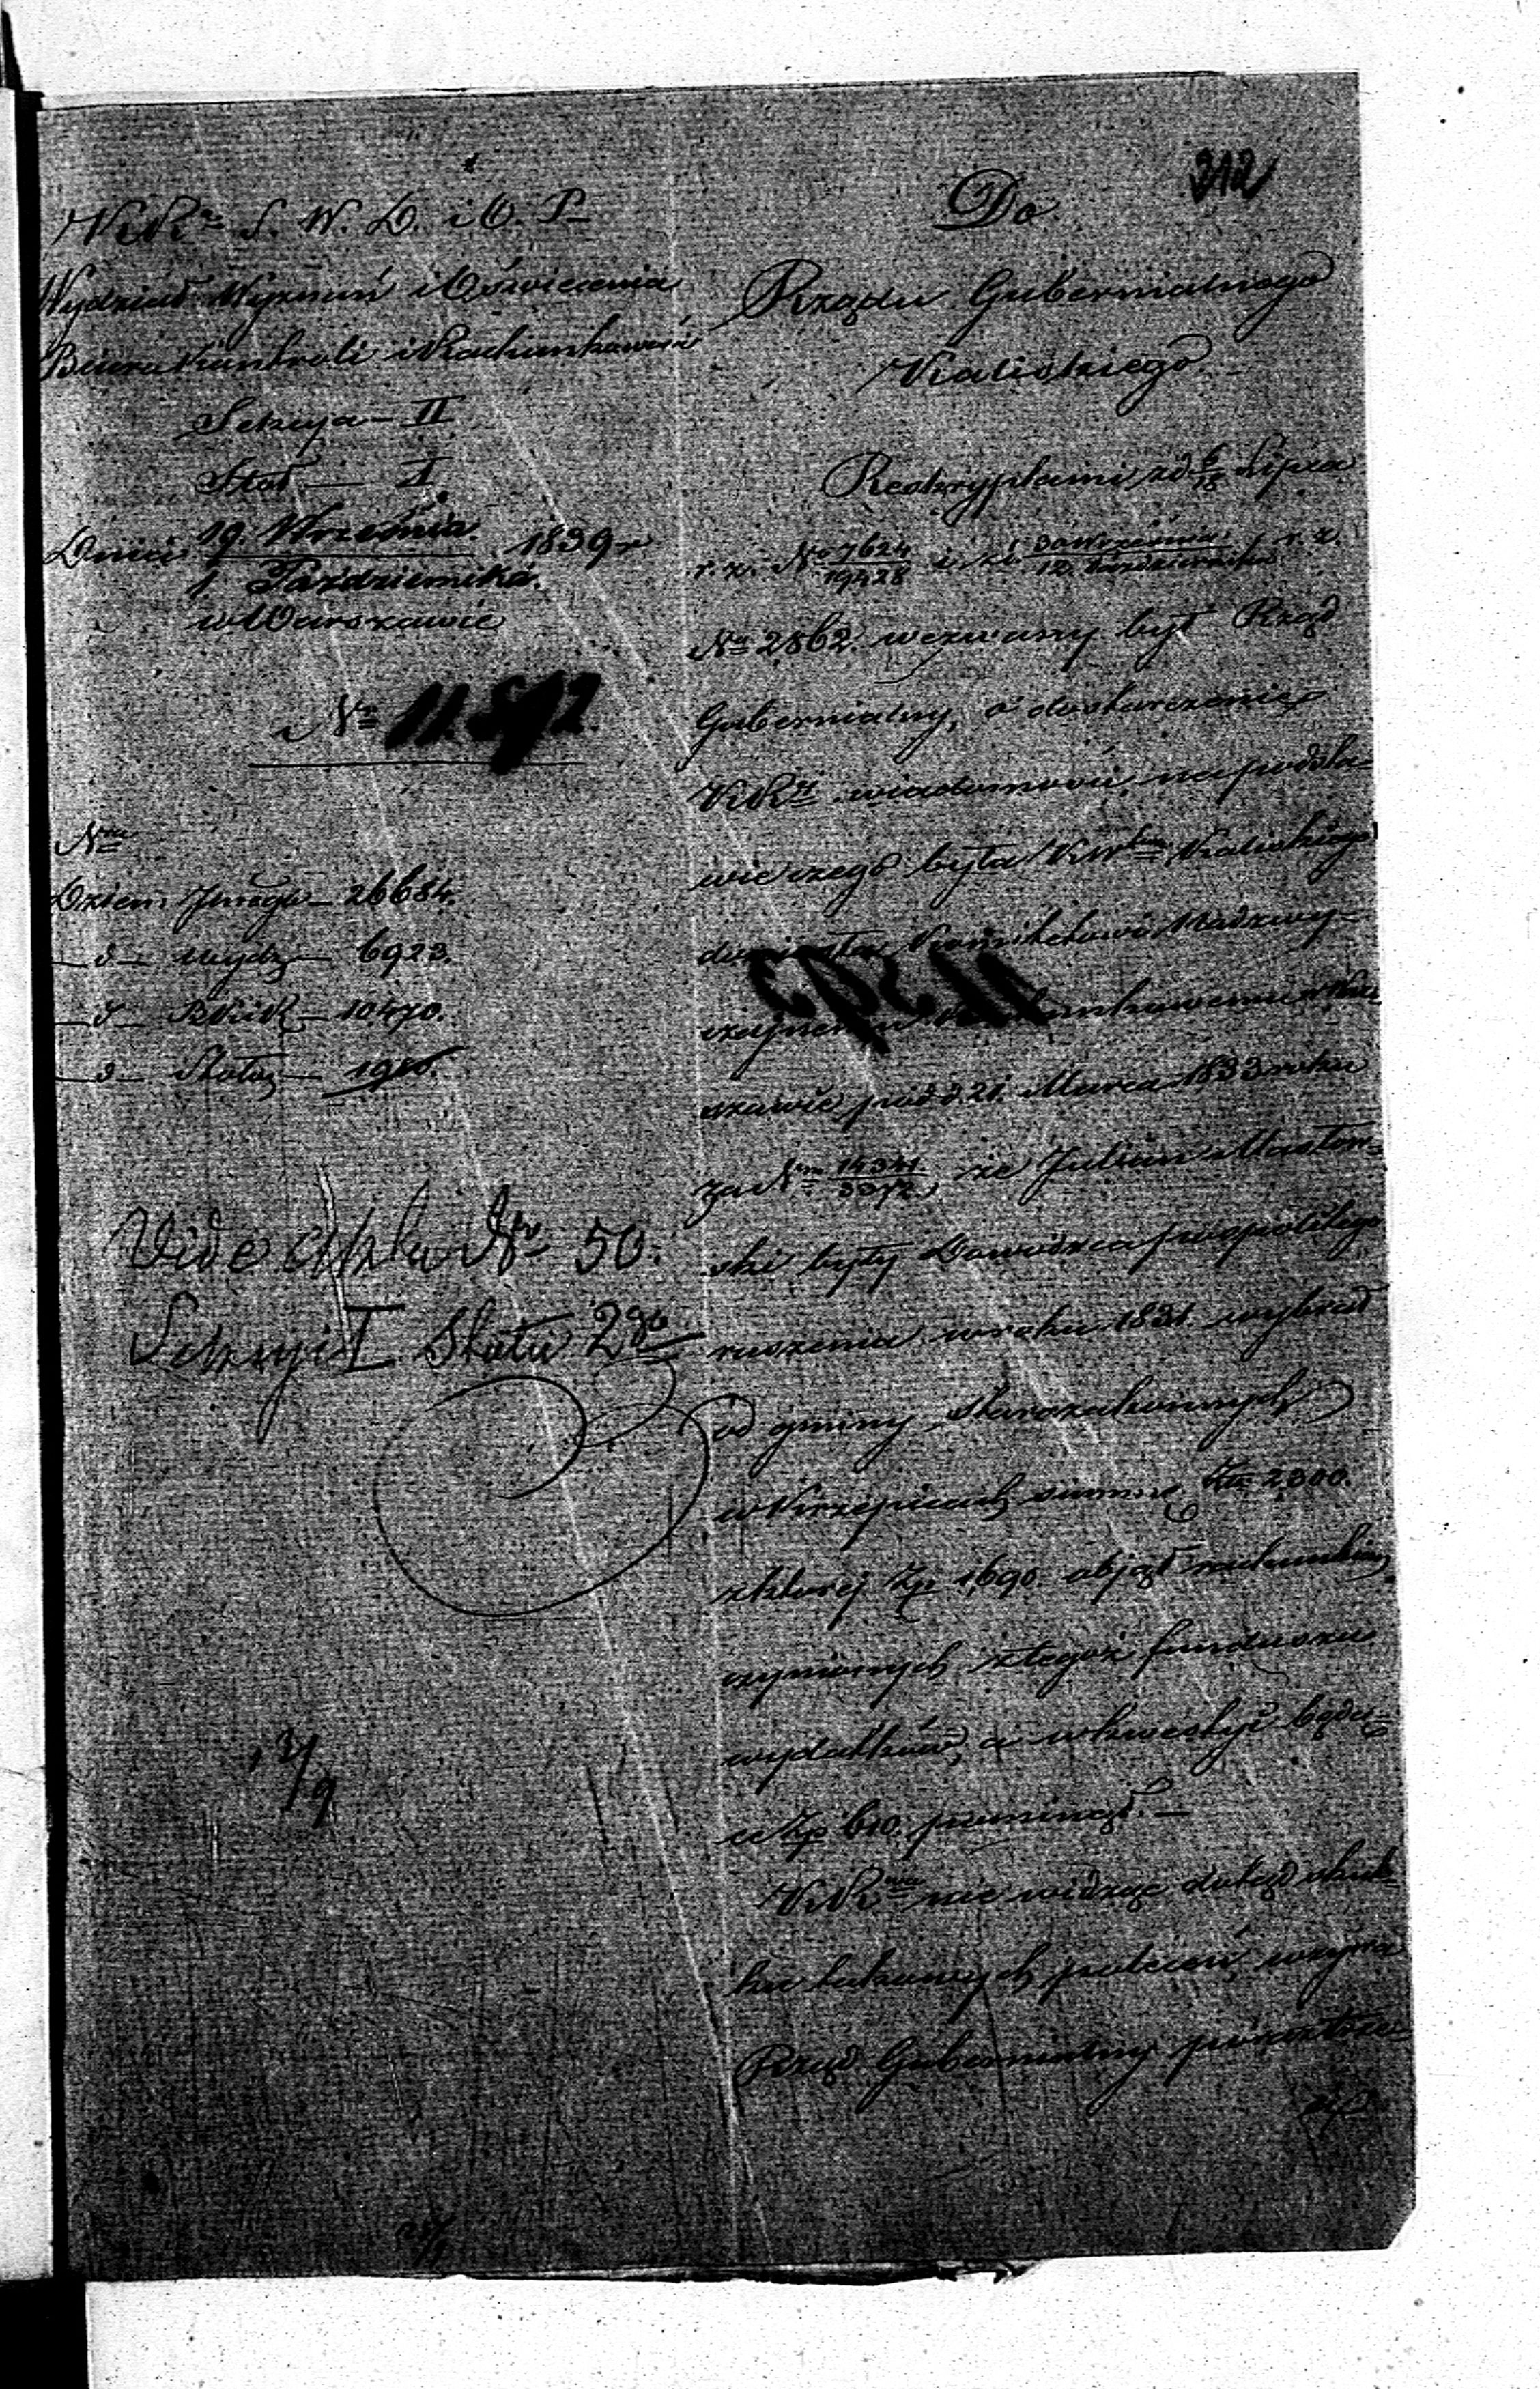 312
KRn S. W. D. i O. P.
Wydział Wyznań i Oświecenia
Biura Kontroli i Rachunkowości
Sekcya — II
Stół — I
Dnia 19. Września 1839 r.
1. Października.
w Warszawie
No 11.592.
Nra
Dzien. Jnrego — 26684.
— d — Wydz. — 6923.
— d — BKiR — 10470.
— d — Stołu —
Vide akta No 50.
Sekcyi I Stołu 2go
Do
Rządu Gubernialnego
Kaliskiego
Reskryptami z d. 6/18 Lipca
r. z. No 7624/19428 i z d. 30 Września/12. Października r. z.
No 2862. wezwany był Rząd
Gubernialny, o dostarczenie
KRi wiadomości, na podsta-
wie czego była KWka Kaliskiego
doniosła Komitetowi Nadzwy-
czajnemu Rachunkowemu w War-
szawie, pod d. 21. Marca 1833 roku
za Nrm 14341/3372, że Julian Masłow-
ski były Dowódzca pospolitego
ruszenia w roku 1831. wybrał
od gminy Starozakonnych
w Krzepicach summę Złp 2300.
z której Złp 1690. objął rachunkiem
czynionych z tegoż funduszu
wydatków, a w kwestyi będą-
ce Złp 610. pominął. —
KRna nie widząc dotąd skut-
ku takowych poleceń, wzywa
Rząd Gubernialny